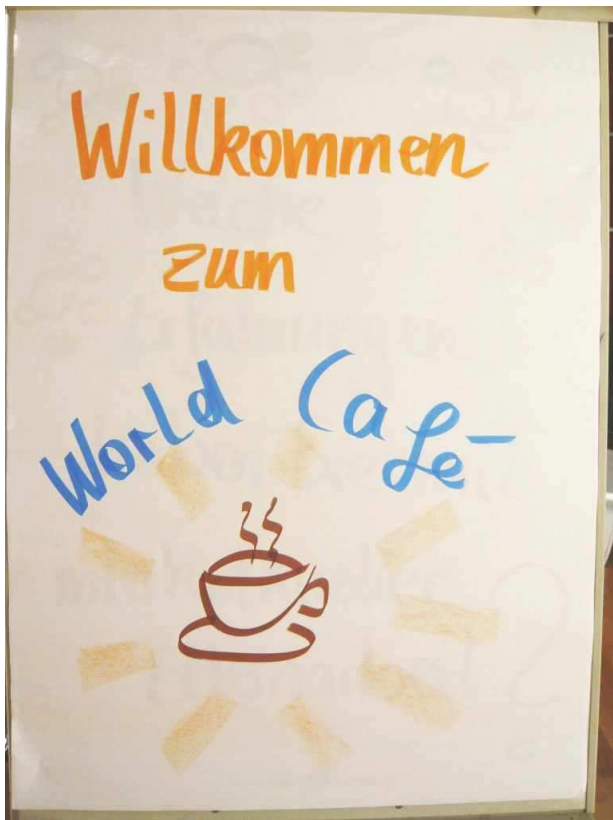 Willkommen
zum
World Café